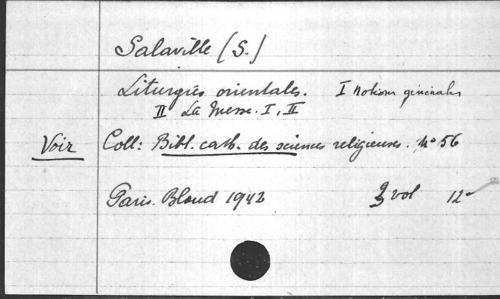 Salaville (S.)
Liturgies orientales. I Notions générales
II La Messe. I, II
Voir Coll: Bibl. cath. des sciences religieuses. No 56
Paris. Bloud 1942 3 vol 12°